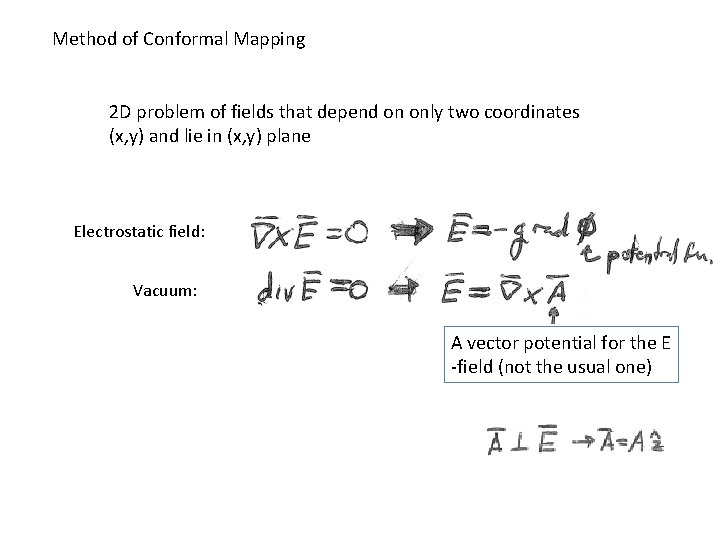 Method of Conformal Mapping
2D problem of fields that depend on only two coordinates
(x,y) and lie in (x,y) plane
Electrostatic field: ∇̄×Ē=0 ⇒ Ē=-grad ϕ
potential fn.
Vacuum: div Ē=0 ⇒ Ē=∇̄×Ā
A vector potential for the E
-field (not the usual one)
Ā⊥Ē → Ā=Aẑ